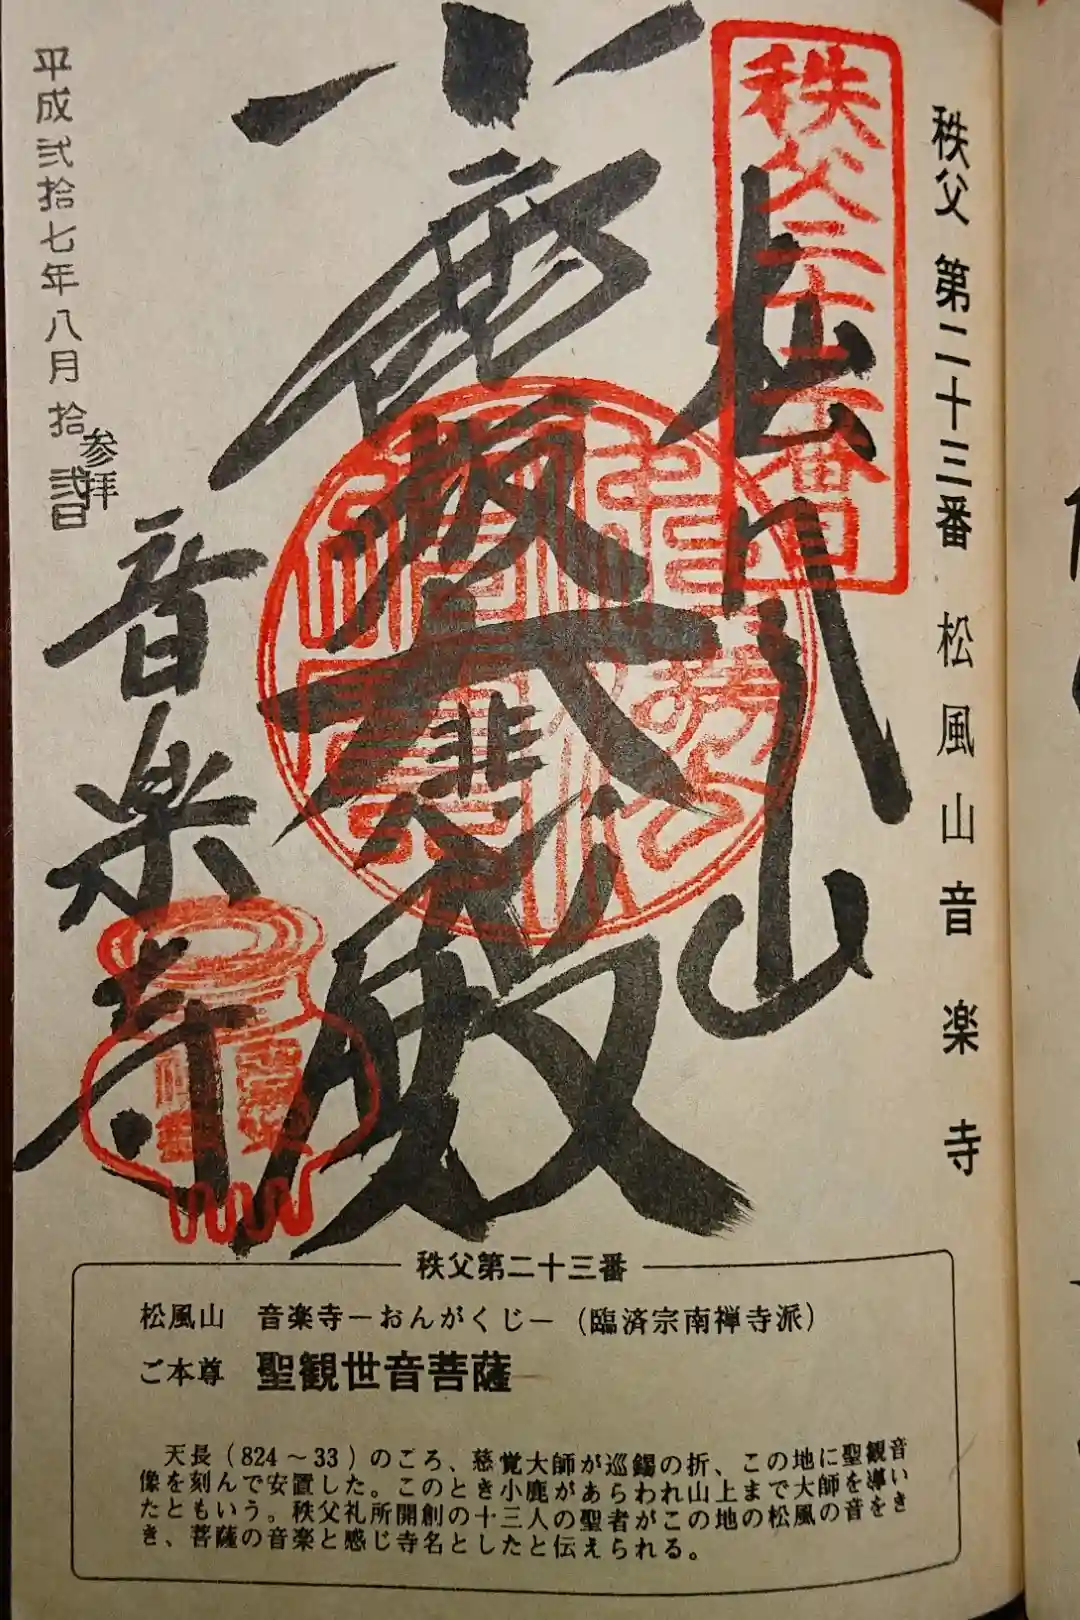 秩父 第二十三番 松風山音楽寺
秩父二十三番
松風山
六鹿
大悲殿
音楽寺
平成弐拾七年八月拾弐日
参拝
秩父第二十三番
松風山 音楽寺－おんがくじ－（臨済宗南禅寺派）
ご本尊 聖観世音菩薩
天長（824～33）のごろ、慈覚大師が巡錫の折、この地に聖観音
像を刻んで安置した。このとき小鹿があらわれ山上まで大師を導い
たともいう。秩父礼所開創の十三人の聖者がこの地の松風の音をき
き、菩薩の音楽と感じ寺名としたと伝えられる。